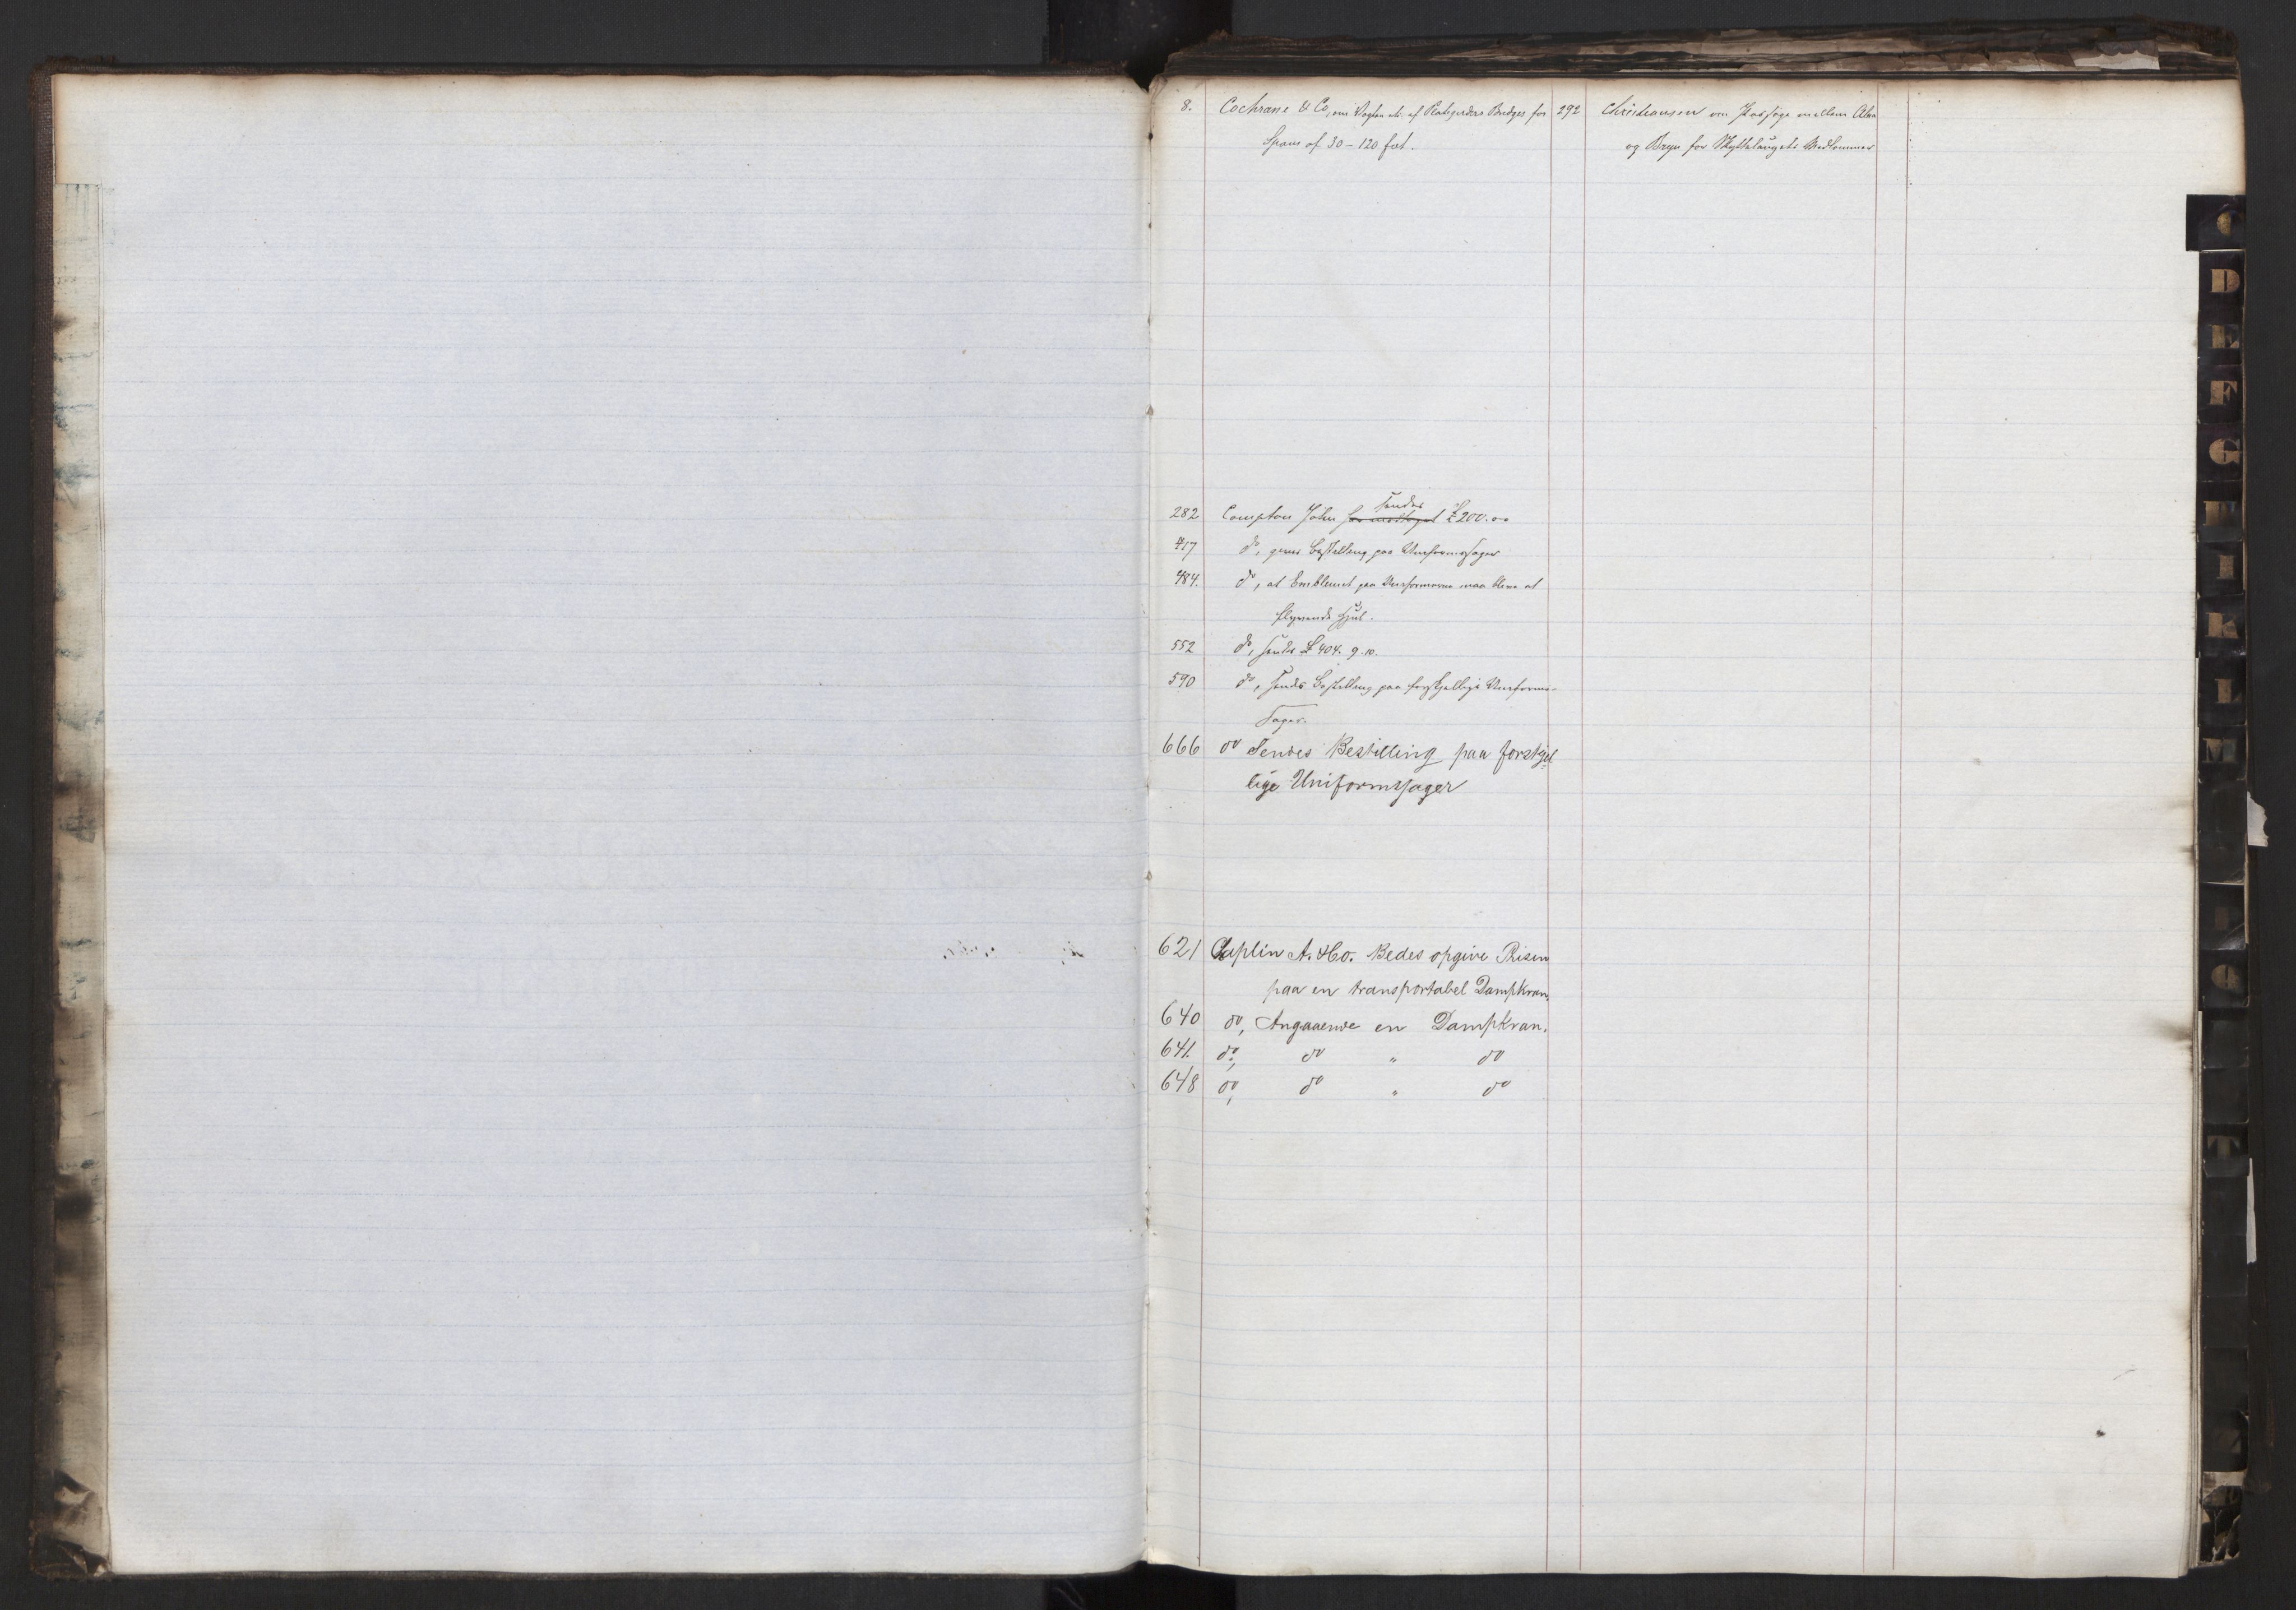 8. Cochrane & Co, om Vægten etc. af Plategirders Bridges for
Spans of 30 – 120 fod.
282 Compton John sendes £ 200.00
417 do, gives Bestilling paa Uniformssager
484. do, at Emblemet paa Uniformerne maa blive et
flyvende Hjul.
552 do, sendes £ 404. 9. 10.
590 do, sendes Bestilling paa forskjellige Uniforms-
sager.
666 do Sendes Bestilling paa forskjel-
lige Uniformssager
621 Caplin A. & Co. Bedes opgive Prisen
paa en transportabel Dampkran.
640 do, Angaaende en Dampkran.
641. do, do " do
648 do, do " do
292 Christiansen om Passage mellem Alna
og Bryn for Skyttelaugets Medlemmer
C
D
E
F
G
H
I
K
L
M
T